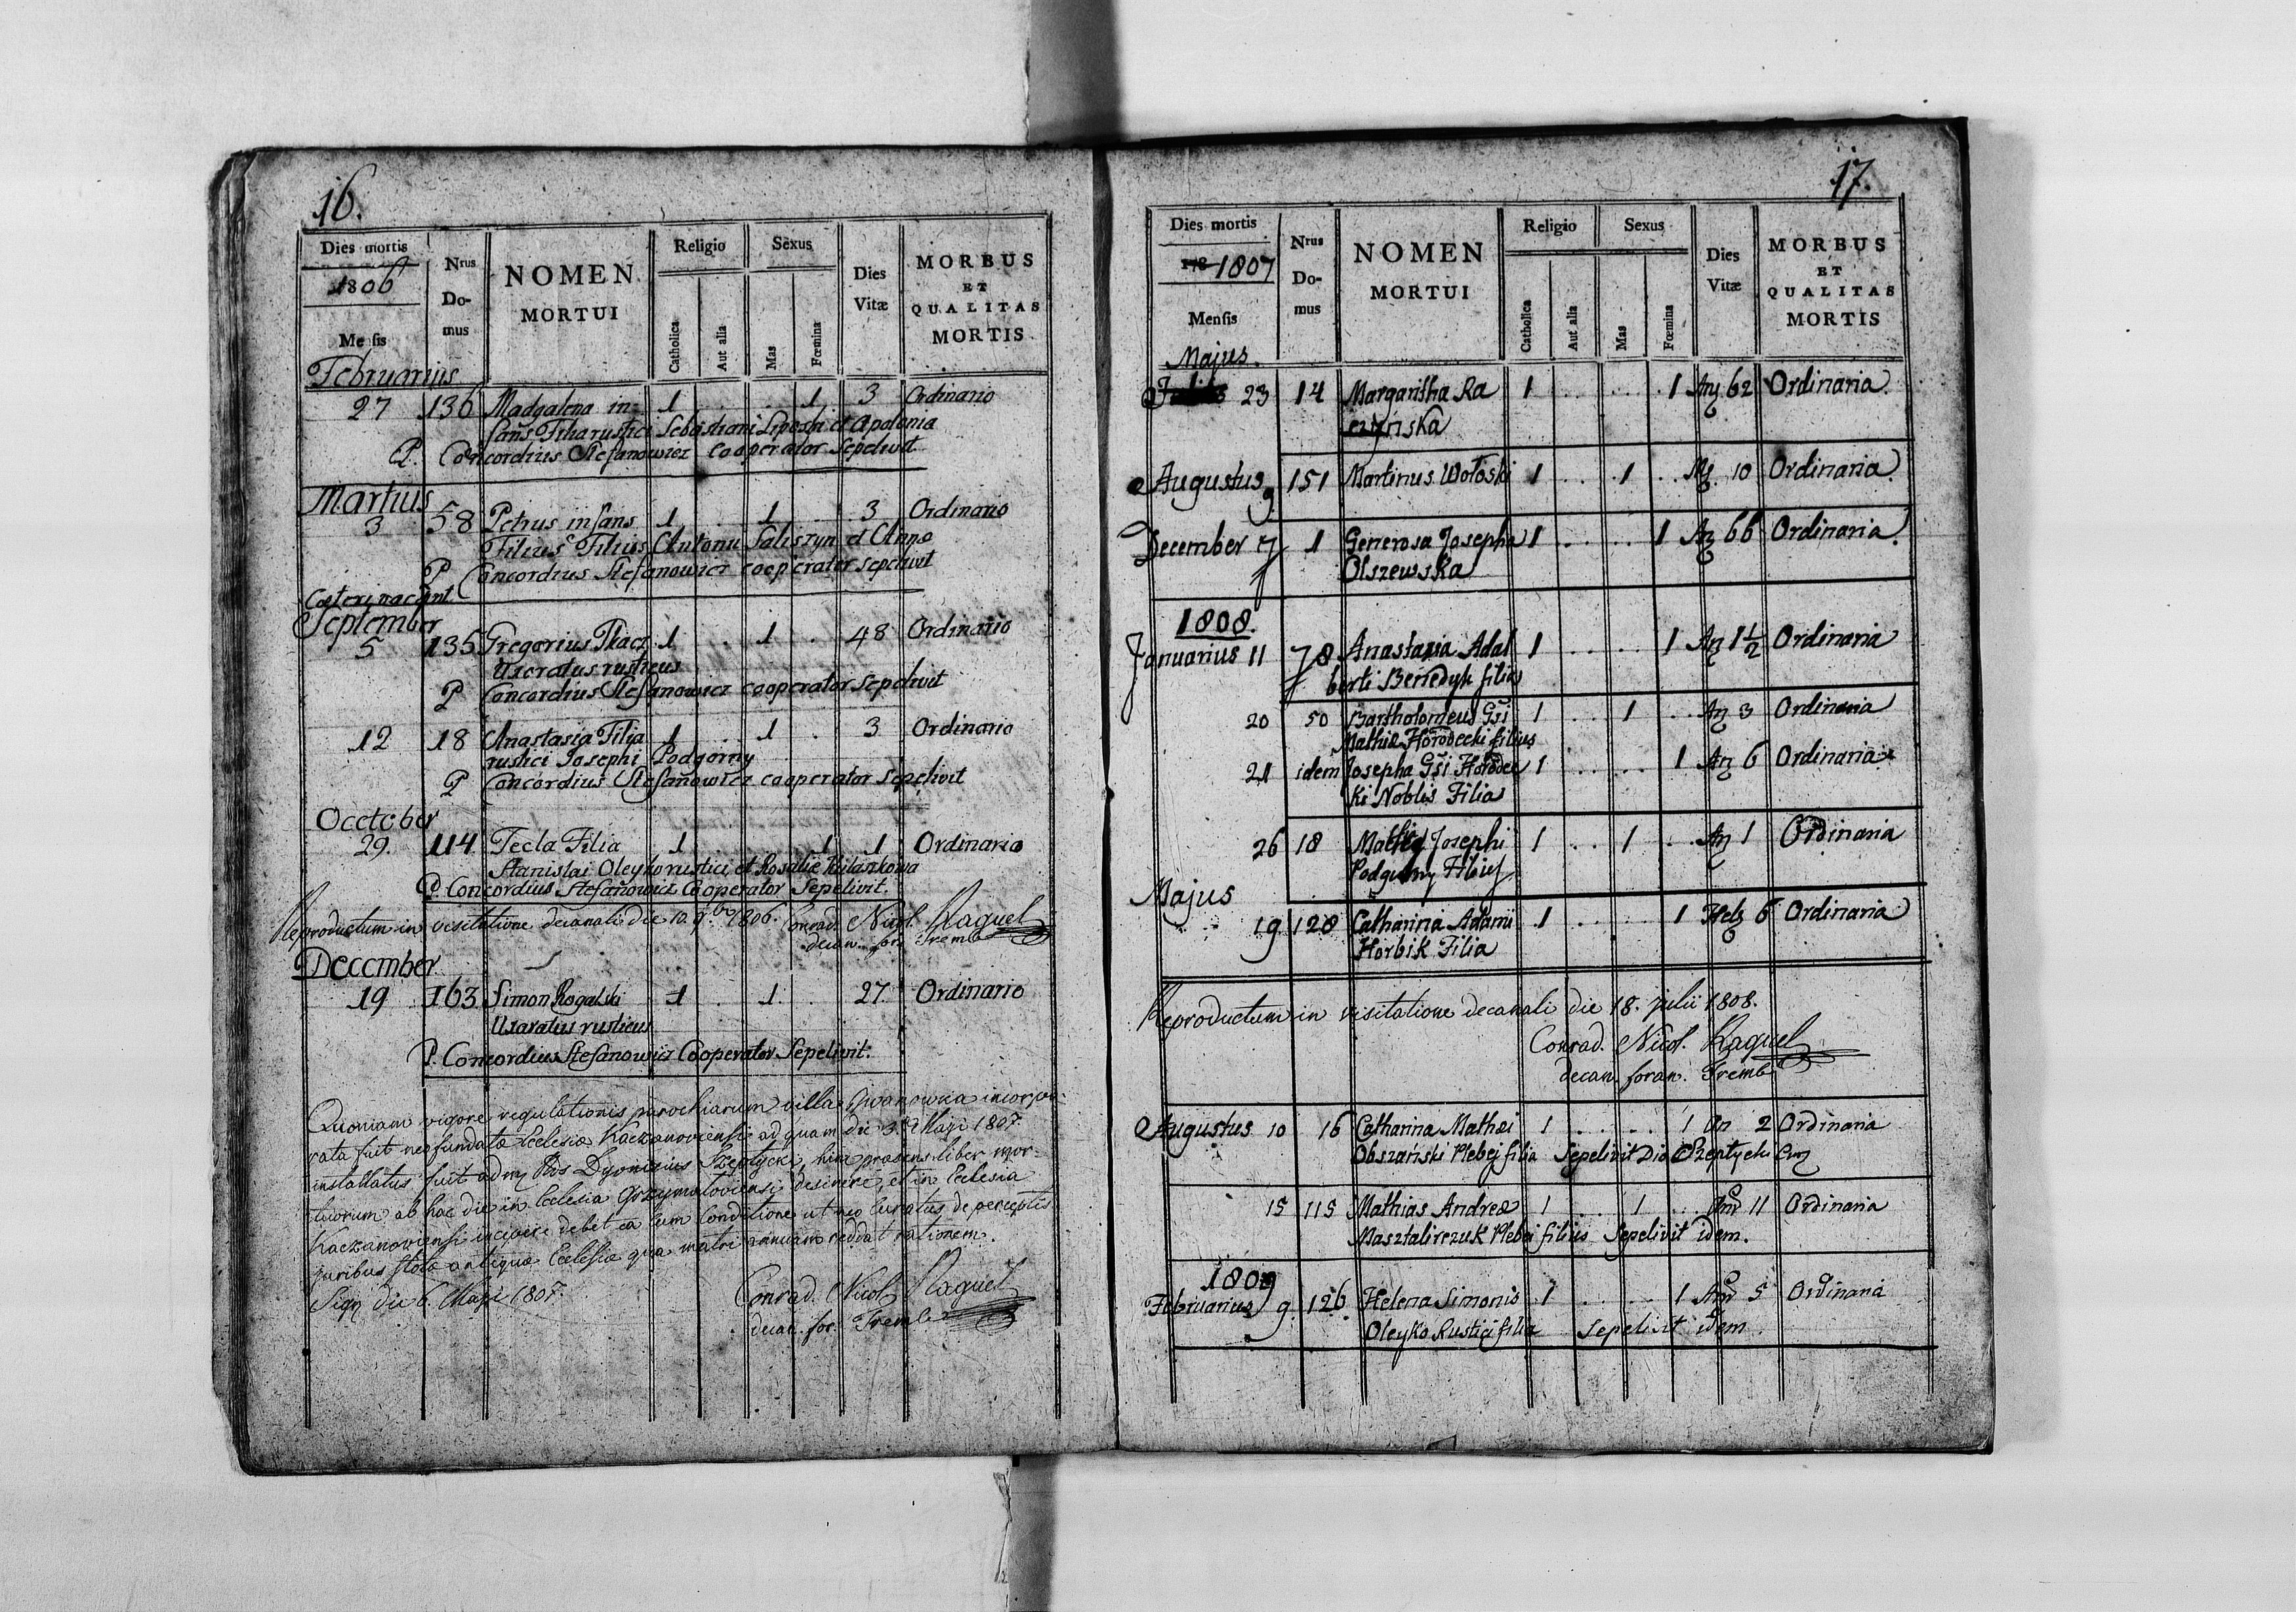 16.
Dies mortis
1806
Mensis
Nrus
Do-
mus
NOMEN
MORTUI
Religio
Catholica
Aut alia
Sexus
Mas
Fœmina
Dies
Vitæ
MORBUS
ET
QUALITAS
MORTIS
Februarius
27 136 Madgalena in= 1 . . 1 3 Ordinario
fans Filia rustici Sebastiani Liposki et Apolonia
P. Concordius Stefanowicz cooperator Sepelivit
Martius
3 58 Petrus infans 1 . 1 . 3 Ordinario
Filius Filius Antonii et Anna
P Concordius Stefanowicz cooperator sepelivit
Cæteri nacant
September
5 135 Gregorius Tkacz 1 . 1 . 48 Ordinario
Uxoratus rusticus
P Concordius Stefanowicz cooperator Sepelivit
12 18 Anastasia Filia 1 . 1 . 3 Ordinario
rustici Josephi Podgorny
P Concordius Stefanowicz cooperator sepelivit
Occtober
29. 114 Tecla Filia 1 . . 1 1 Ordinario
Stanislai Oleyko rustici et Rosaliæ
P. Concordius Stefanowicz Cooperator Sepelivit.
Reproductum in visitatione decanali die 10 9bris 1806. Conrad. Nicol. Raguel
decan. for. Tremb
December
19 163 Simon Rogalski 1 . 1 . 27. Ordinario
Uxoratus rusticus
P. Concordius Stefanowicz Cooperator Sepelivit.
Quoniam vigore regulationis parochiarum villa Iwanowka incorpo-
rata fuit neofundatæ Eclesiæ Kaczanoviensi ad quam die 3. Maji 1807.
installatus fuit Dyonisius Szeptycki, hinc præsens liber mor-
tuorum ab hac die in Eclesia Grzymaloviensi desinere, et in Eclesia
Kaczanoviensi incipere debet ea cum Conditione ut neo Curatus de perceptis
juribus stolæ antiquæ Eclesiæ qua matri annuam reddat rationem.
Sign die 6. Maji 1807.
Conrad. Nicol. Raguel
decan. for. Tremb
17.
Dies mortis
178 1807
Mensis
Nrus
Do-
mus
NOMEN
MORTUI
Religio
Catholica
Aut alia
Sexus
Mas
Fœmina
Dies
Vitæ
MORBUS
ET
QUALITAS
MORTIS
Majus
23 14 Margaritha Ra 1 . . . 1 An 62 Ordinaria.
czynska
Augustus 9 151 Martinus Wołoski 1 . . 1 . . 10 Ordinaria.
December 7 1 Generosa Josepha 1 . . . 1 An 66 Ordinaria.
Olszewska
1808.
Januarius 11 78 Anastazia Adal 1 . . . 1 An 1½ Ordinaria
berti Benedyk filia
20 50 Bartholomeus Gsi 1 . . 1 . . An 3 Ordinaria
Mathiæ Horodecki filius
21 idem Josepha Gsi Horodec 1 . . . 1 An 6 Ordinaria
ki Noblis Filia
26 18 Josephi 1 . . 1 . . An 1 Ordinaria
Podgurny Filius
Majus
19 128 Catharina Adami 1 . . . 1 6 Ordinaria
Horbik Filia
Reproductum in visitatione decanali die 18. julii 1808.
Conrad. Nicol. Raguel
decan. foran. Tremb
Augustus 10 16 Catharina Mathæi 1 . . . 1 An 2 Ordinaria
Obszański Plebej filia Sepelivit Dio Szeptycki
15 115 Mathias Andreæ 1 . . 1 . . An 11 Ordinaria
Masztalirczuk Plebej filius Sepelivit idem.
1809
Februarius 9. 126 Helena Simonis 1 . . . 1 An 5 Ordinaria
Oleyko Rustici filia Sepelivit idem.